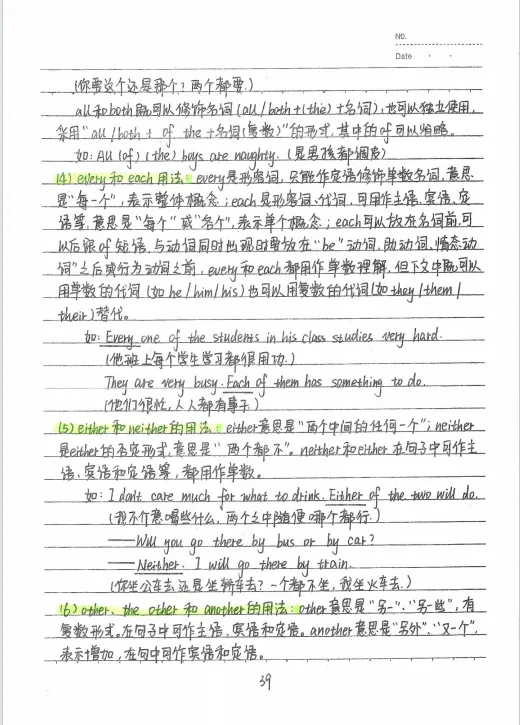 NO.
Date
(你要这个还是那个? 两个都要.)
all和both既可以修饰名词(all/both+(the)+名词),也可以独立使用,
采用"all/both + of the +名词(复数)"的形式,其中的of可以省略。
如: All (of) (the) boys are naughty. (是男孩都调皮)
(4) every和each用法: every是形容词,只能作定语修饰单数名词,意思
是"每一个",表示整体概念; each是形容词、代词,可用作主语、宾语、定
语等,意思是"每个"或"各个",表示单个概念; each可以放在名词前,可
以后跟of短语,与动词同时出现时要放在"be"动词、助动词、情态动
词"之后或行为动词之前, every和each都用作单数理解,但下文中既可以
用单数的代词(如he/him/his)也可以用复数的代词(如they/them/
their)替代。
如: Every one of the students in his class studies very hard.
(他班上每个学生学习都很用功.)
They are very busy. Each of them has something to do.
(他们很忙,人人都有事干)
(5) either和neither的用法: either意思是"两个中间的任何一个"; neither
是either的否定形式,意思是"两个都不"。neither和either在句子中可作主
语、宾语和定语等,都用作单数。
如: I don't care much for what to drink. Either of the two will do.
(我不介意喝些什么,两个之中随便哪个都行.)
——Will you go there by bus or by car?
——Neither. I will go there by train.
(你坐公车去还是坐轿车去? 一个都不坐,我坐火车去.)
(6) other、the other和another的用法: other意思是"另一"、"另一些",有
复数形式,在句子中可作主语、宾语和定语。another意思是"另外"、"又一个",
表示增加,在句中可作宾语和定语。
39